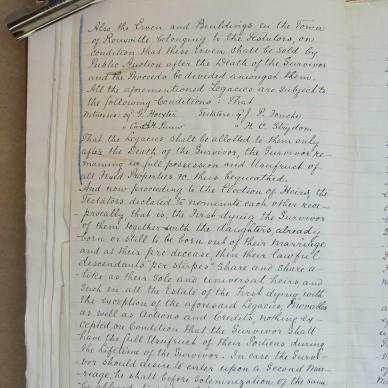 Also the Erven and Buildings in the Town
of Rouxville belonging to the Testators, on
condition that these Erven shall be sold by
Public Auction after the Death of the Survivor
and the Proceeds be divided amongst them.
All the aforementioned Legacies are subject to
the following Conditions: That
Witnesses Testators J. P. Fouche
H. C. Strydom
That the Legacies shall be allotted to them only
after the Death of the Survivor, the Survivor re-
maining in full possession and Usufruct of
all Fixed Properties so. thus bequeathed.
And now proceeding to the Election of Heirs, the
Testators declared to nominate each other reci-
procally, that is, the First dying the Survivor
of them together with the daughters, already
born or still to be born out of their Marriage
and at their pre-decease, then their lawful
descendants "per stirpes" Share and Share a-
like as their Sole and universal heirs and
such in all the Estate of the First dying, with
the exception of the aforesaid Legacies, Movables
as well as Actions and Credits, nothing ex-
cepted on Condition that the Survivor shall
have the full Usufruct of their Portions during
the lifetime of the Survivor. In case the Survi-
vor should desire to enter upon a Second Mar-
riage, he shall before Solemnization of the same
be obliged